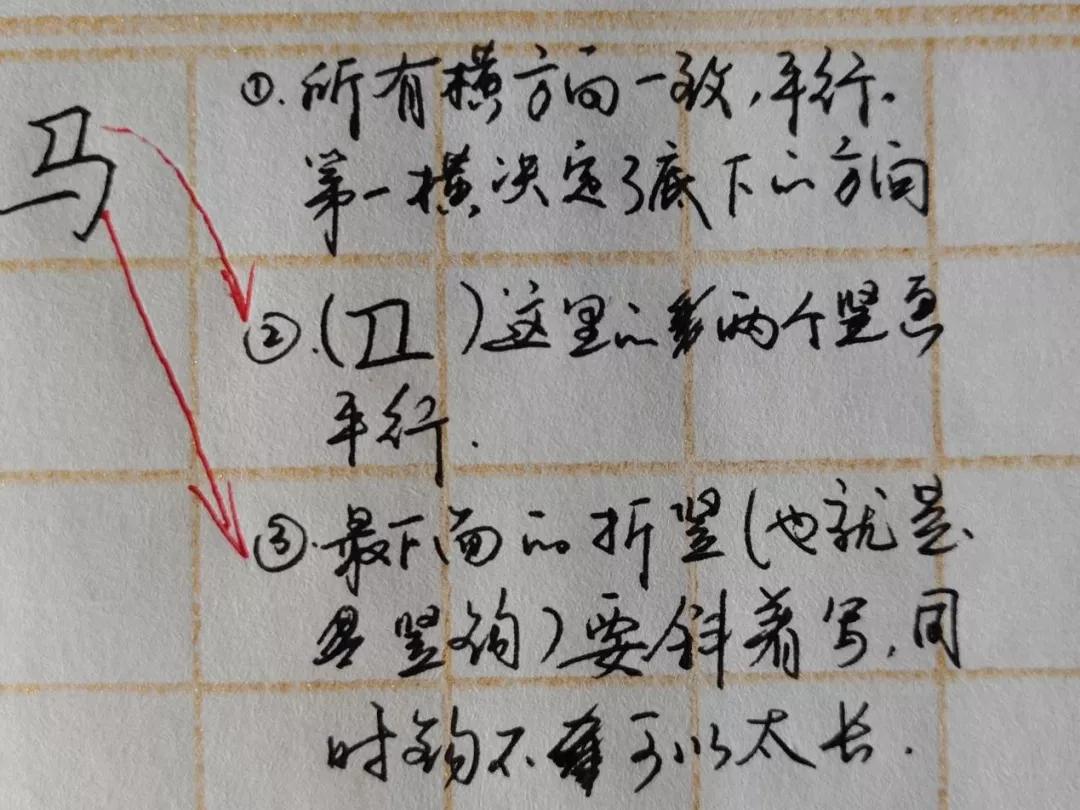 马
①.所有横方向一致,平行.
第一横决定了底下的方向
②.( )这里的两个竖画
平行.
③.最下面的折竖(也就是
竖钩)要斜着写,同
时钩不可以太长.